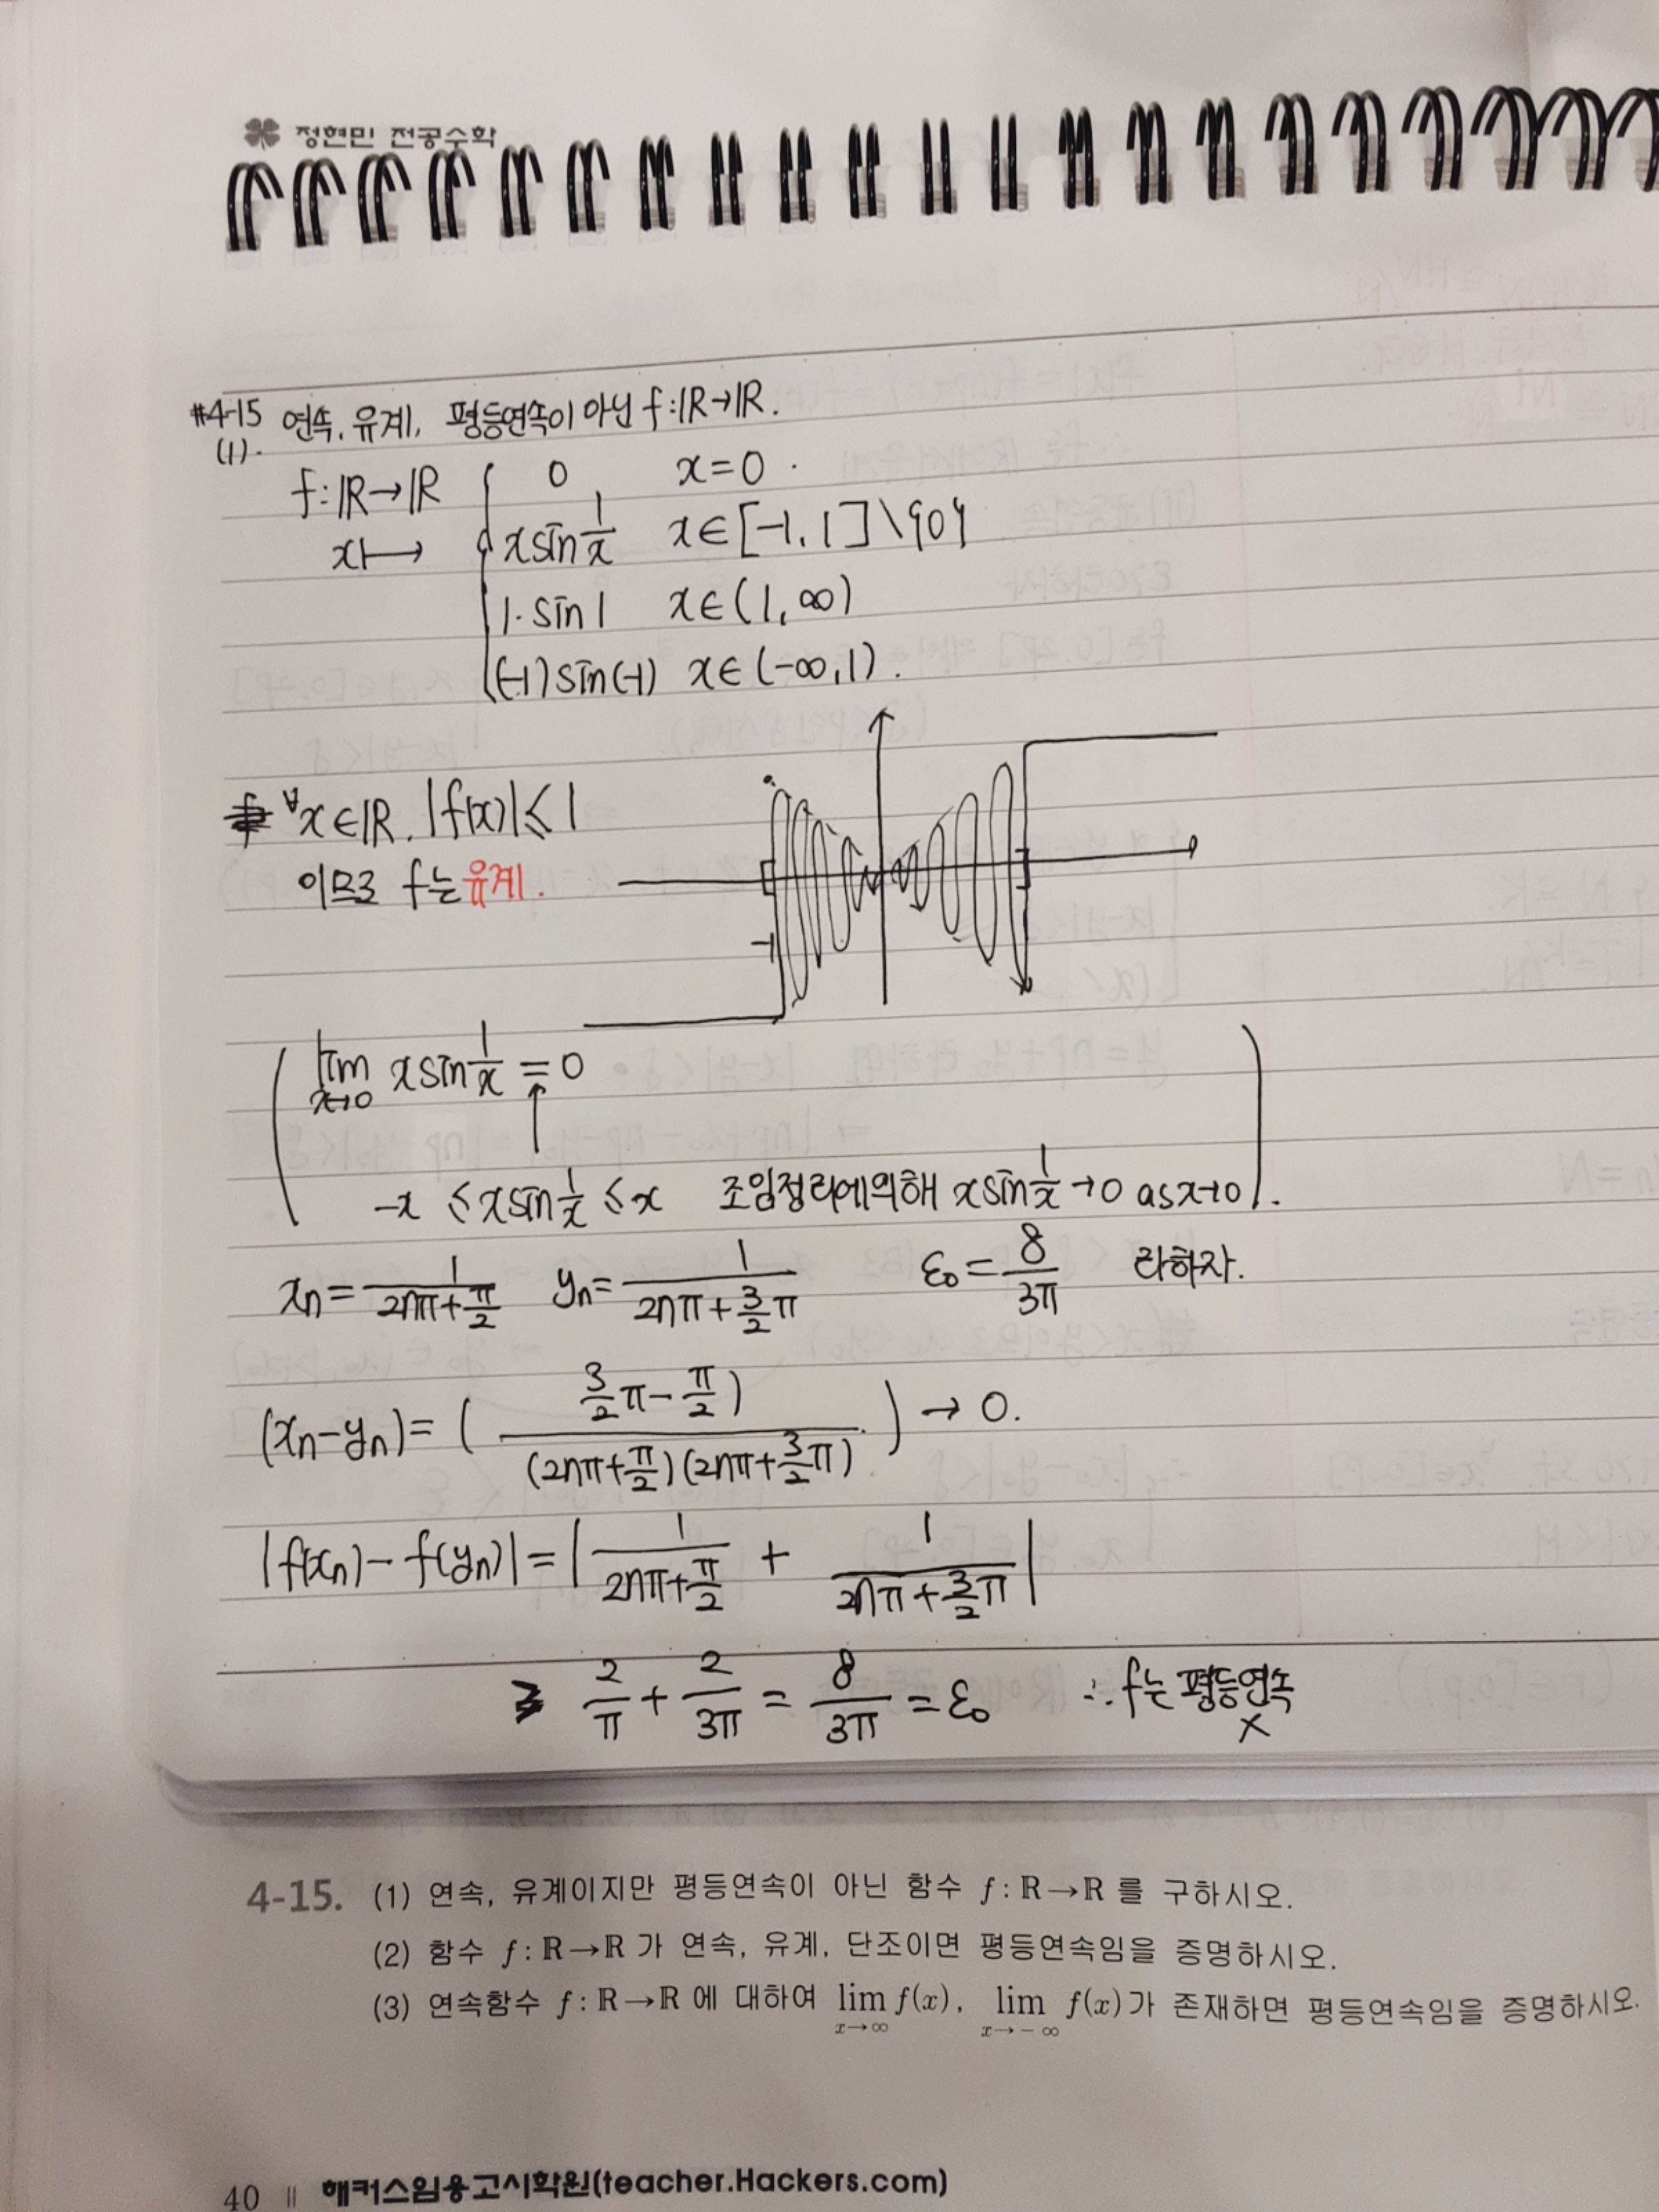 정현민 전공수학
#4-15 연속, 유계, 평등연속이 아닌 f:ℝ→ℝ.
(1).
f:ℝ→ℝ { 0 x=0 .
x↦ x sin 1/x x∈[-1,1]\{0}
1·sin1 x∈(1,∞)
(-1)sin(-1) x∈(-∞,1).
∀x∈ℝ. |f(x)|≤1
이므로 f는 유계.
-1
lim x→0 x sin 1/x = 0
-x ≤ x sin 1/x ≤ x 조임정리에의해 x sin 1/x →0 as x→0 ).
xn = 1/(2nπ+π/2) yn = 1/(2nπ+3/2 π) ε₀ = 8/3π 라하자.
(xn-yn) = ( (3/2 π - π/2) / (2nπ+π/2)(2nπ+3/2 π) ) → 0.
|f(xn)-f(yn)| = | 1/(2nπ+π/2) + 1/(2nπ+3/2 π) |
≥ 2/π + 2/3π = 8/3π = ε₀ ∴ f는 평등연속 ×
4-15. (1) 연속, 유계이지만 평등연속이 아닌 함수 f : ℝ→ℝ 를 구하시오.
(2) 함수 f : ℝ→ℝ 가 연속, 유계, 단조이면 평등연속임을 증명하시오.
(3) 연속함수 f : ℝ→ℝ 에 대하여 lim x→∞ f(x), lim x→-∞ f(x)가 존재하면 평등연속임을 증명하시오.
40 || 해커스임용고시학원(teacher.Hackers.com)